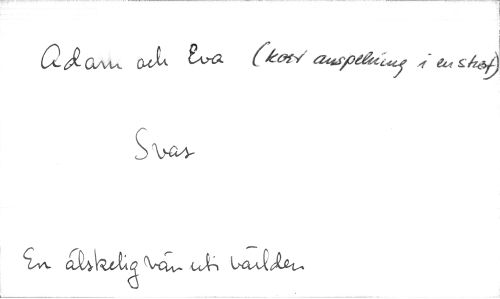 Adam och Eva (kort anspelning i en strof)
Svas
En älskelig vän uti världen